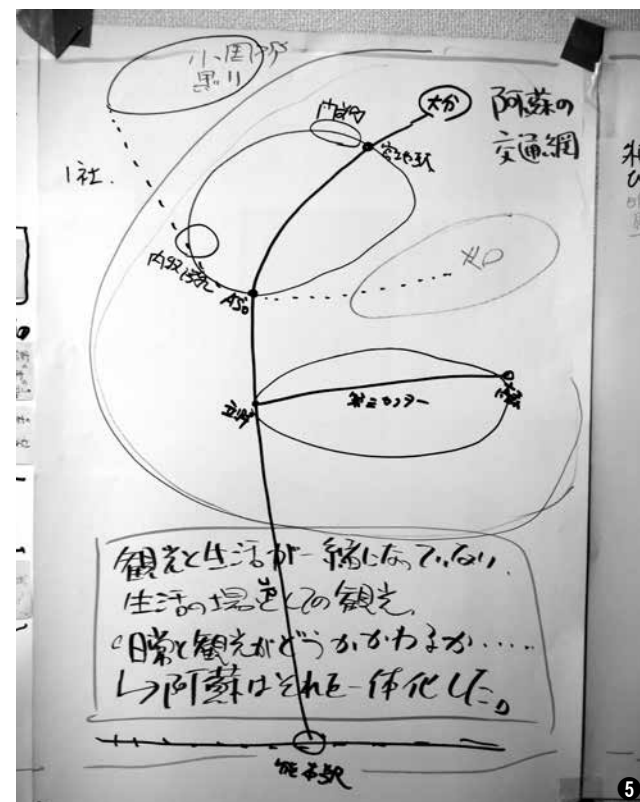 小国
黒川
大分
阿蘇の
交通網
内牧
宮地駅
1社.
ASO
立野
第三セクター
高森
観光と生活が一緒になっていない.
生活の場としての観光.
日常と観光がどうかかわるか……
↳阿蘇はそれを一体化した。
熊本駅
5